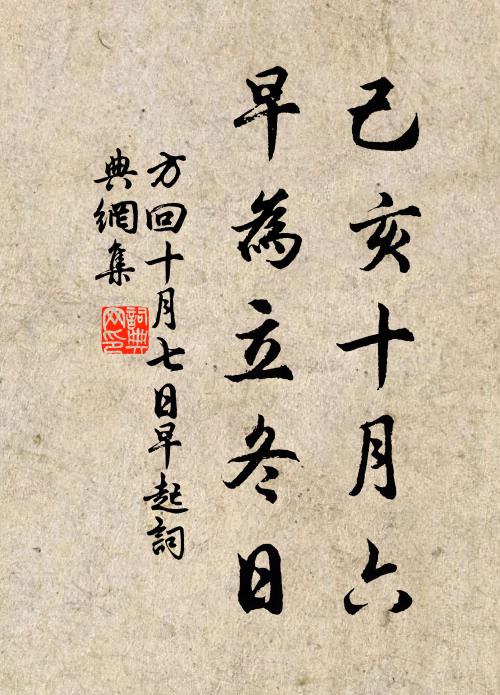 己亥十月六
早為立冬日
方回十月七日早起詞
典網集
詞典
网印